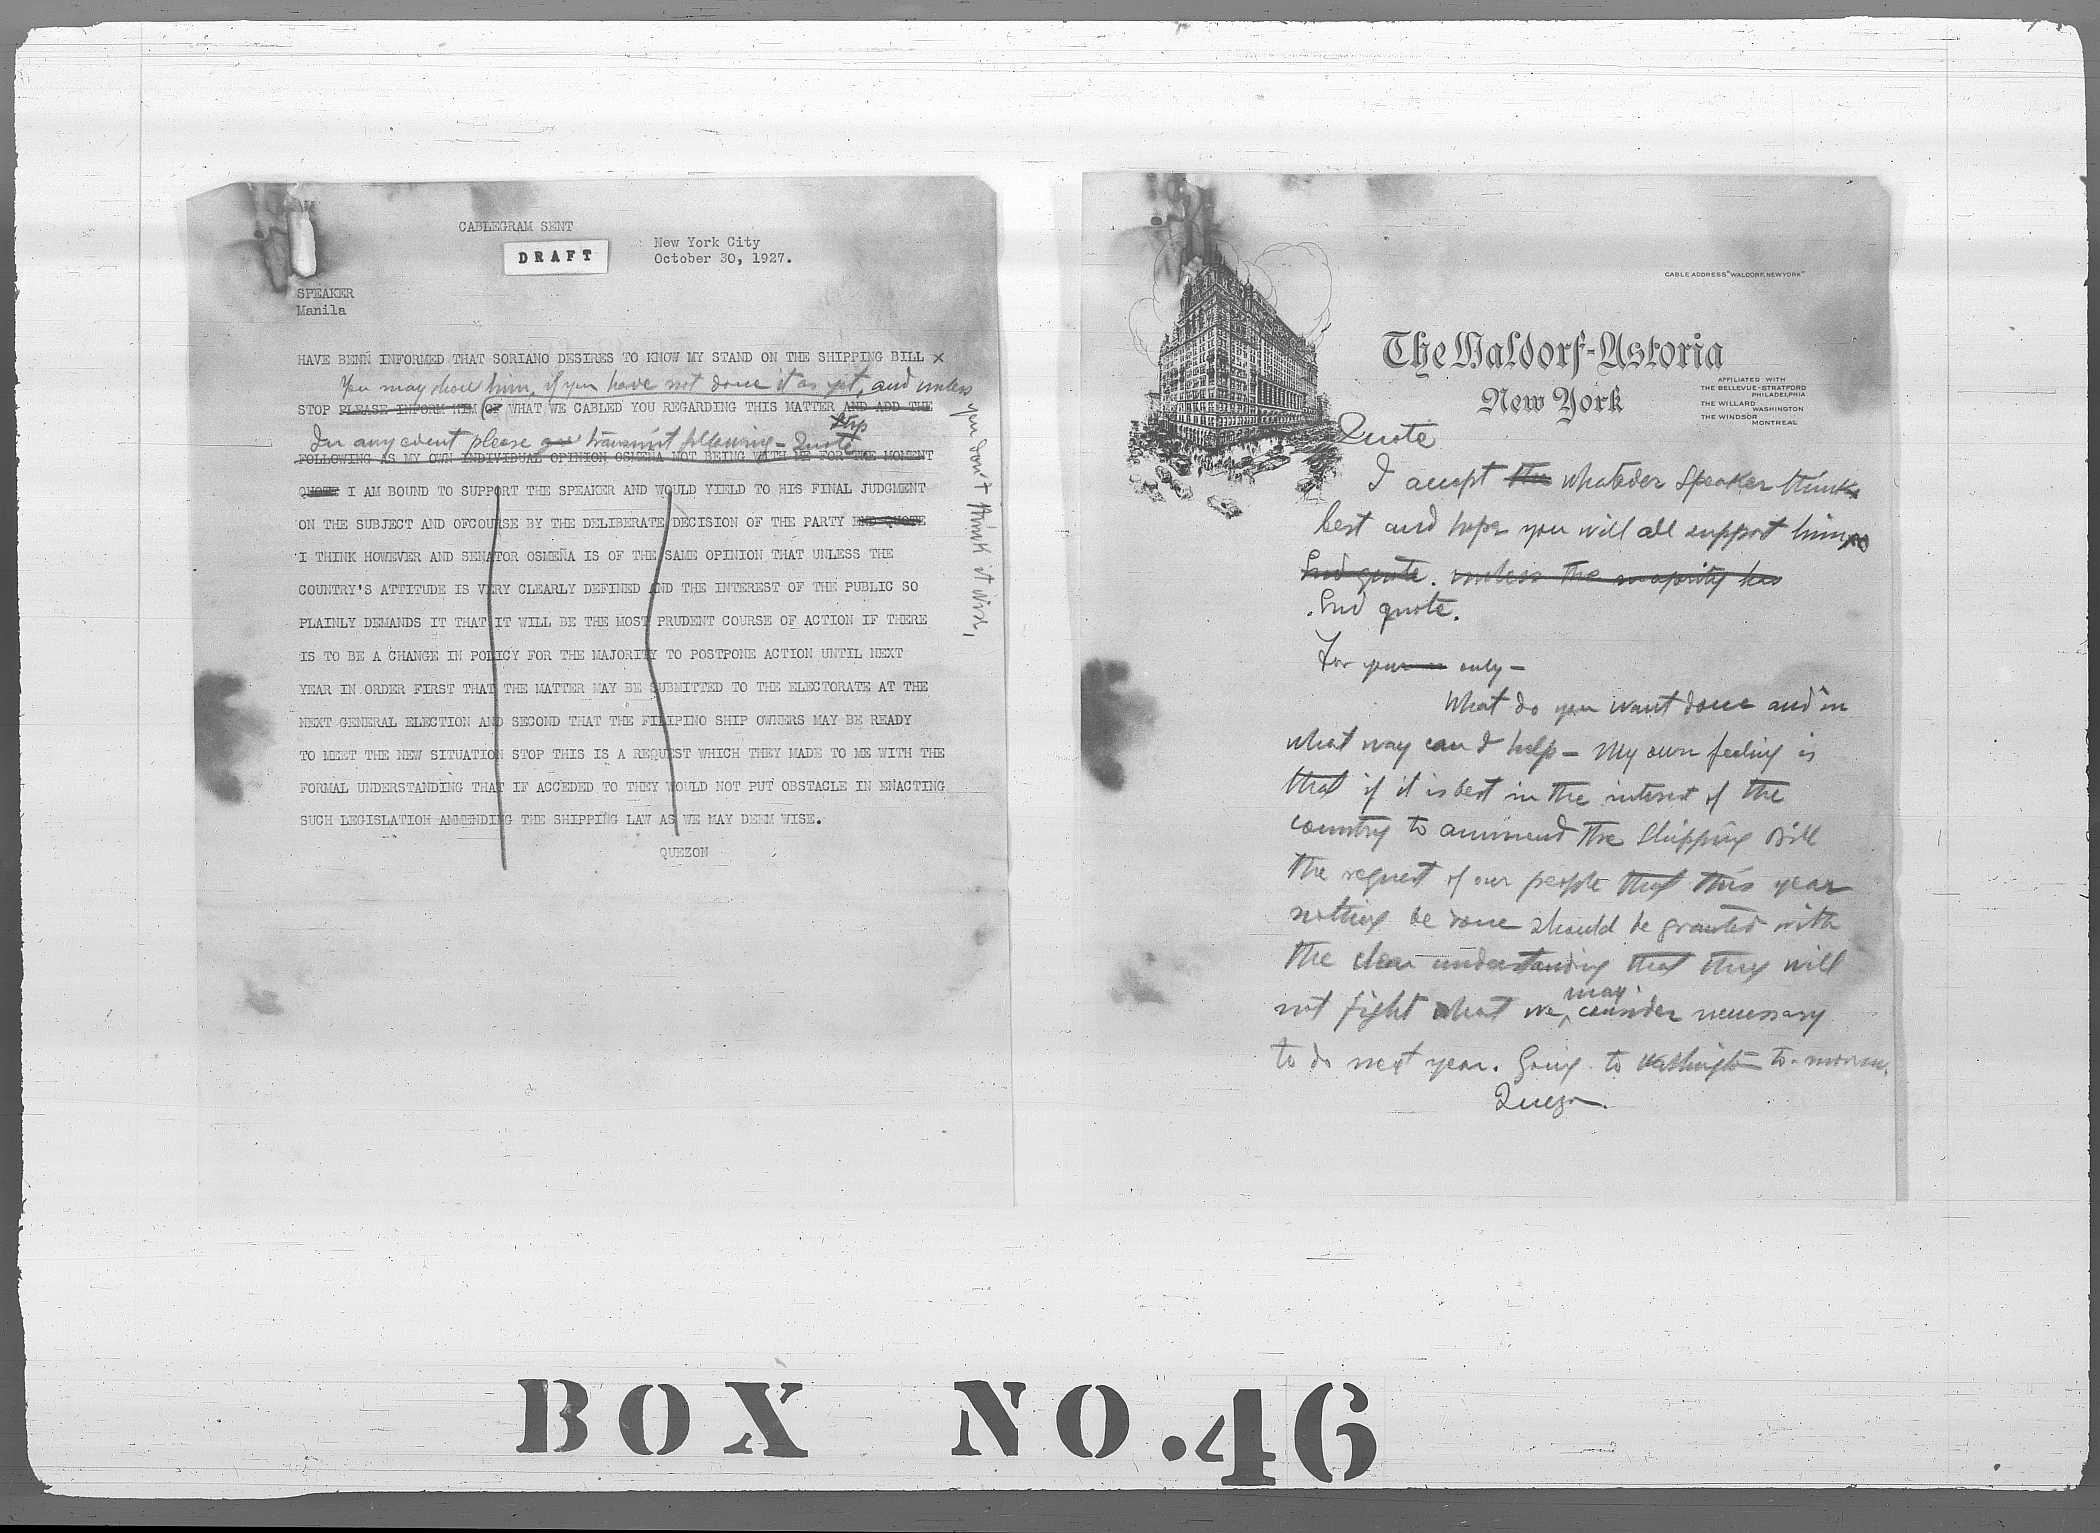 CABLEGRAM SENT
DRAFT
New York City
October 30, 1927.
SPEAKER
Manila
HAVE BENN INFORMED THAT SORIANO DESIRES TO KNOW MY STAND ON THE SHIPPING BILL x
You may show him, if you have not done it as yet, and unless
you don't think it wise,
STOP PLEASE INFORM HIM OF WHAT WE CABLED YOU REGARDING THIS MATTER AND ADD THE
Stop
In any event please transmit following - Quote
FOLLOWING AS MY OWN INDIVIDUAL OPINION OSMEÑA NOT BEING WITH ME FOR THE MOMENT
QUOTE I AM BOUND TO SUPPORT THE SPEAKER AND WOULD YIELD TO HIS FINAL JUDGMENT
ON THE SUBJECT AND OFCOURSE BY THE DELIBERATE DECISION OF THE PARTY END QUOTE
I THINK HOWEVER AND SENATOR OSMEÑA IS OF THE SAME OPINION THAT UNLESS THE
COUNTRY'S ATTITUDE IS VERY CLEARLY DEFINED AND THE INTEREST OF THE PUBLIC SO
PLAINLY DEMANDS IT THAT IT WILL BE THE MOST PRUDENT COURSE OF ACTION IF THERE
IS TO BE A CHANGE IN POLICY FOR THE MAJORITY TO POSTPONE ACTION UNTIL NEXT
YEAR IN ORDER FIRST THAT THE MATTER MAY BE SUBMITTED TO THE ELECTORATE AT THE
NEXT GENERAL ELECTION AND SECOND THAT THE FILIPINO SHIP OWNERS MAY BE READY
TO MEET THE NEW SITUATION STOP THIS IS A REQUEST WHICH THEY MADE TO ME WITH THE
FORMAL UNDERSTANDING THAT IF ACCEDED TO THEY WOULD NOT PUT OBSTACLE IN ENACTING
SUCH LEGISLATION AMMENDING THE SHIPPING LAW AS WE MAY DEEM WISE.
QUEZON
CABLE ADDRESS "WALDORF, NEW YORK"
The Waldorf-Astoria
New York
AFFILIATED WITH
THE BELLEVUE-STRATFORD
PHILADELPHIA
THE WILLARD
WASHINGTON
THE WINDSOR
MONTREAL
Quote
I accept the whatever Speaker thinks
best and hope you will all support him
End quote. unless the majority has
End quote.
For your only -
What do you want done and in
what way can I help - My own feeling is
that if it is best in the interest of the
country to ammend the Shipping Bill
the request of our people that this year
nothing be done should be granted with
the clear understanding that they will
may
not fight what we consider necessary
to do next year. Going to Washington to-morrow.
Quezon.
BOX NO. 46